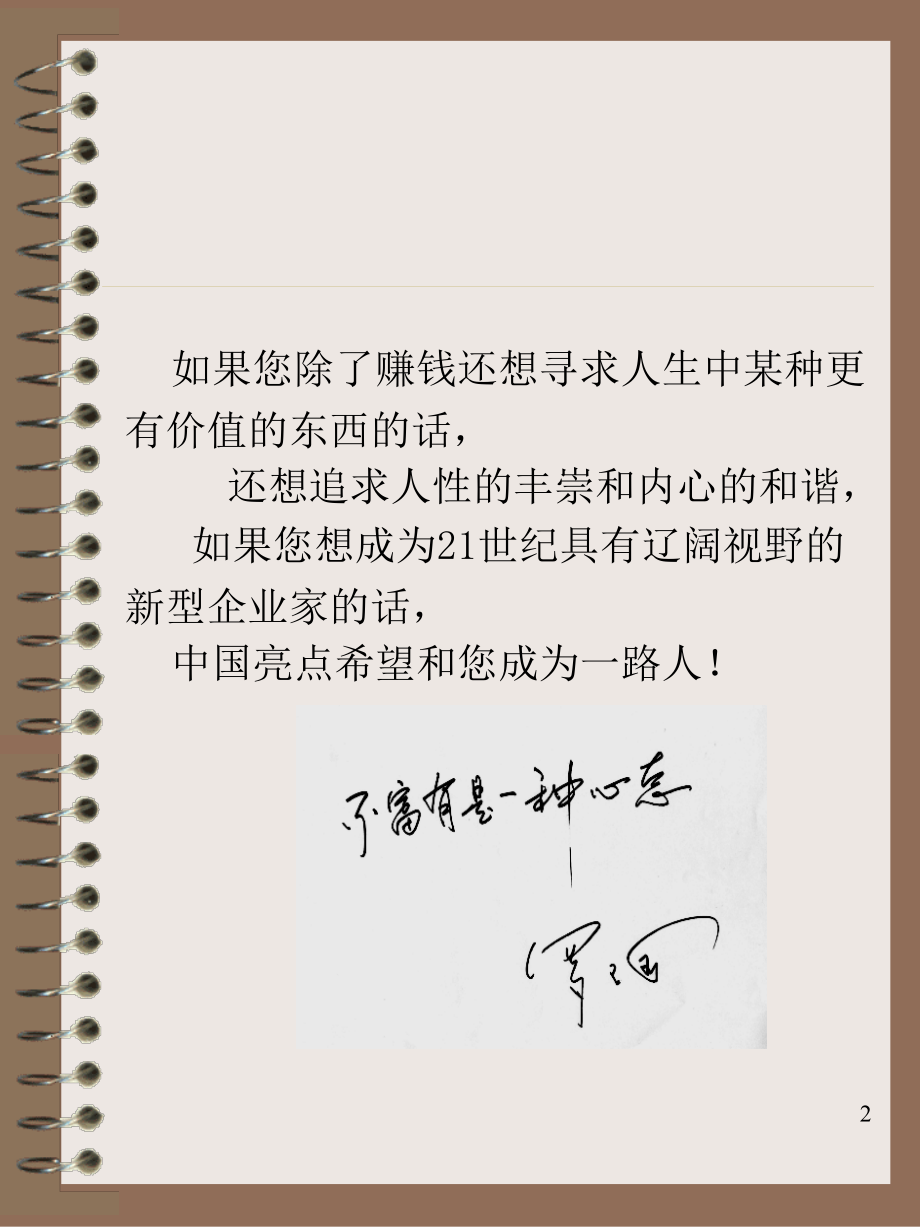 如果您除了赚钱还想寻求人生中某种更
有价值的东西的话，
还想追求人性的丰崇和内心的和谐，
如果您想成为21世纪具有辽阔视野的
新型企业家的话，
中国亮点希望和您成为一路人！
不富有是一种心态
2